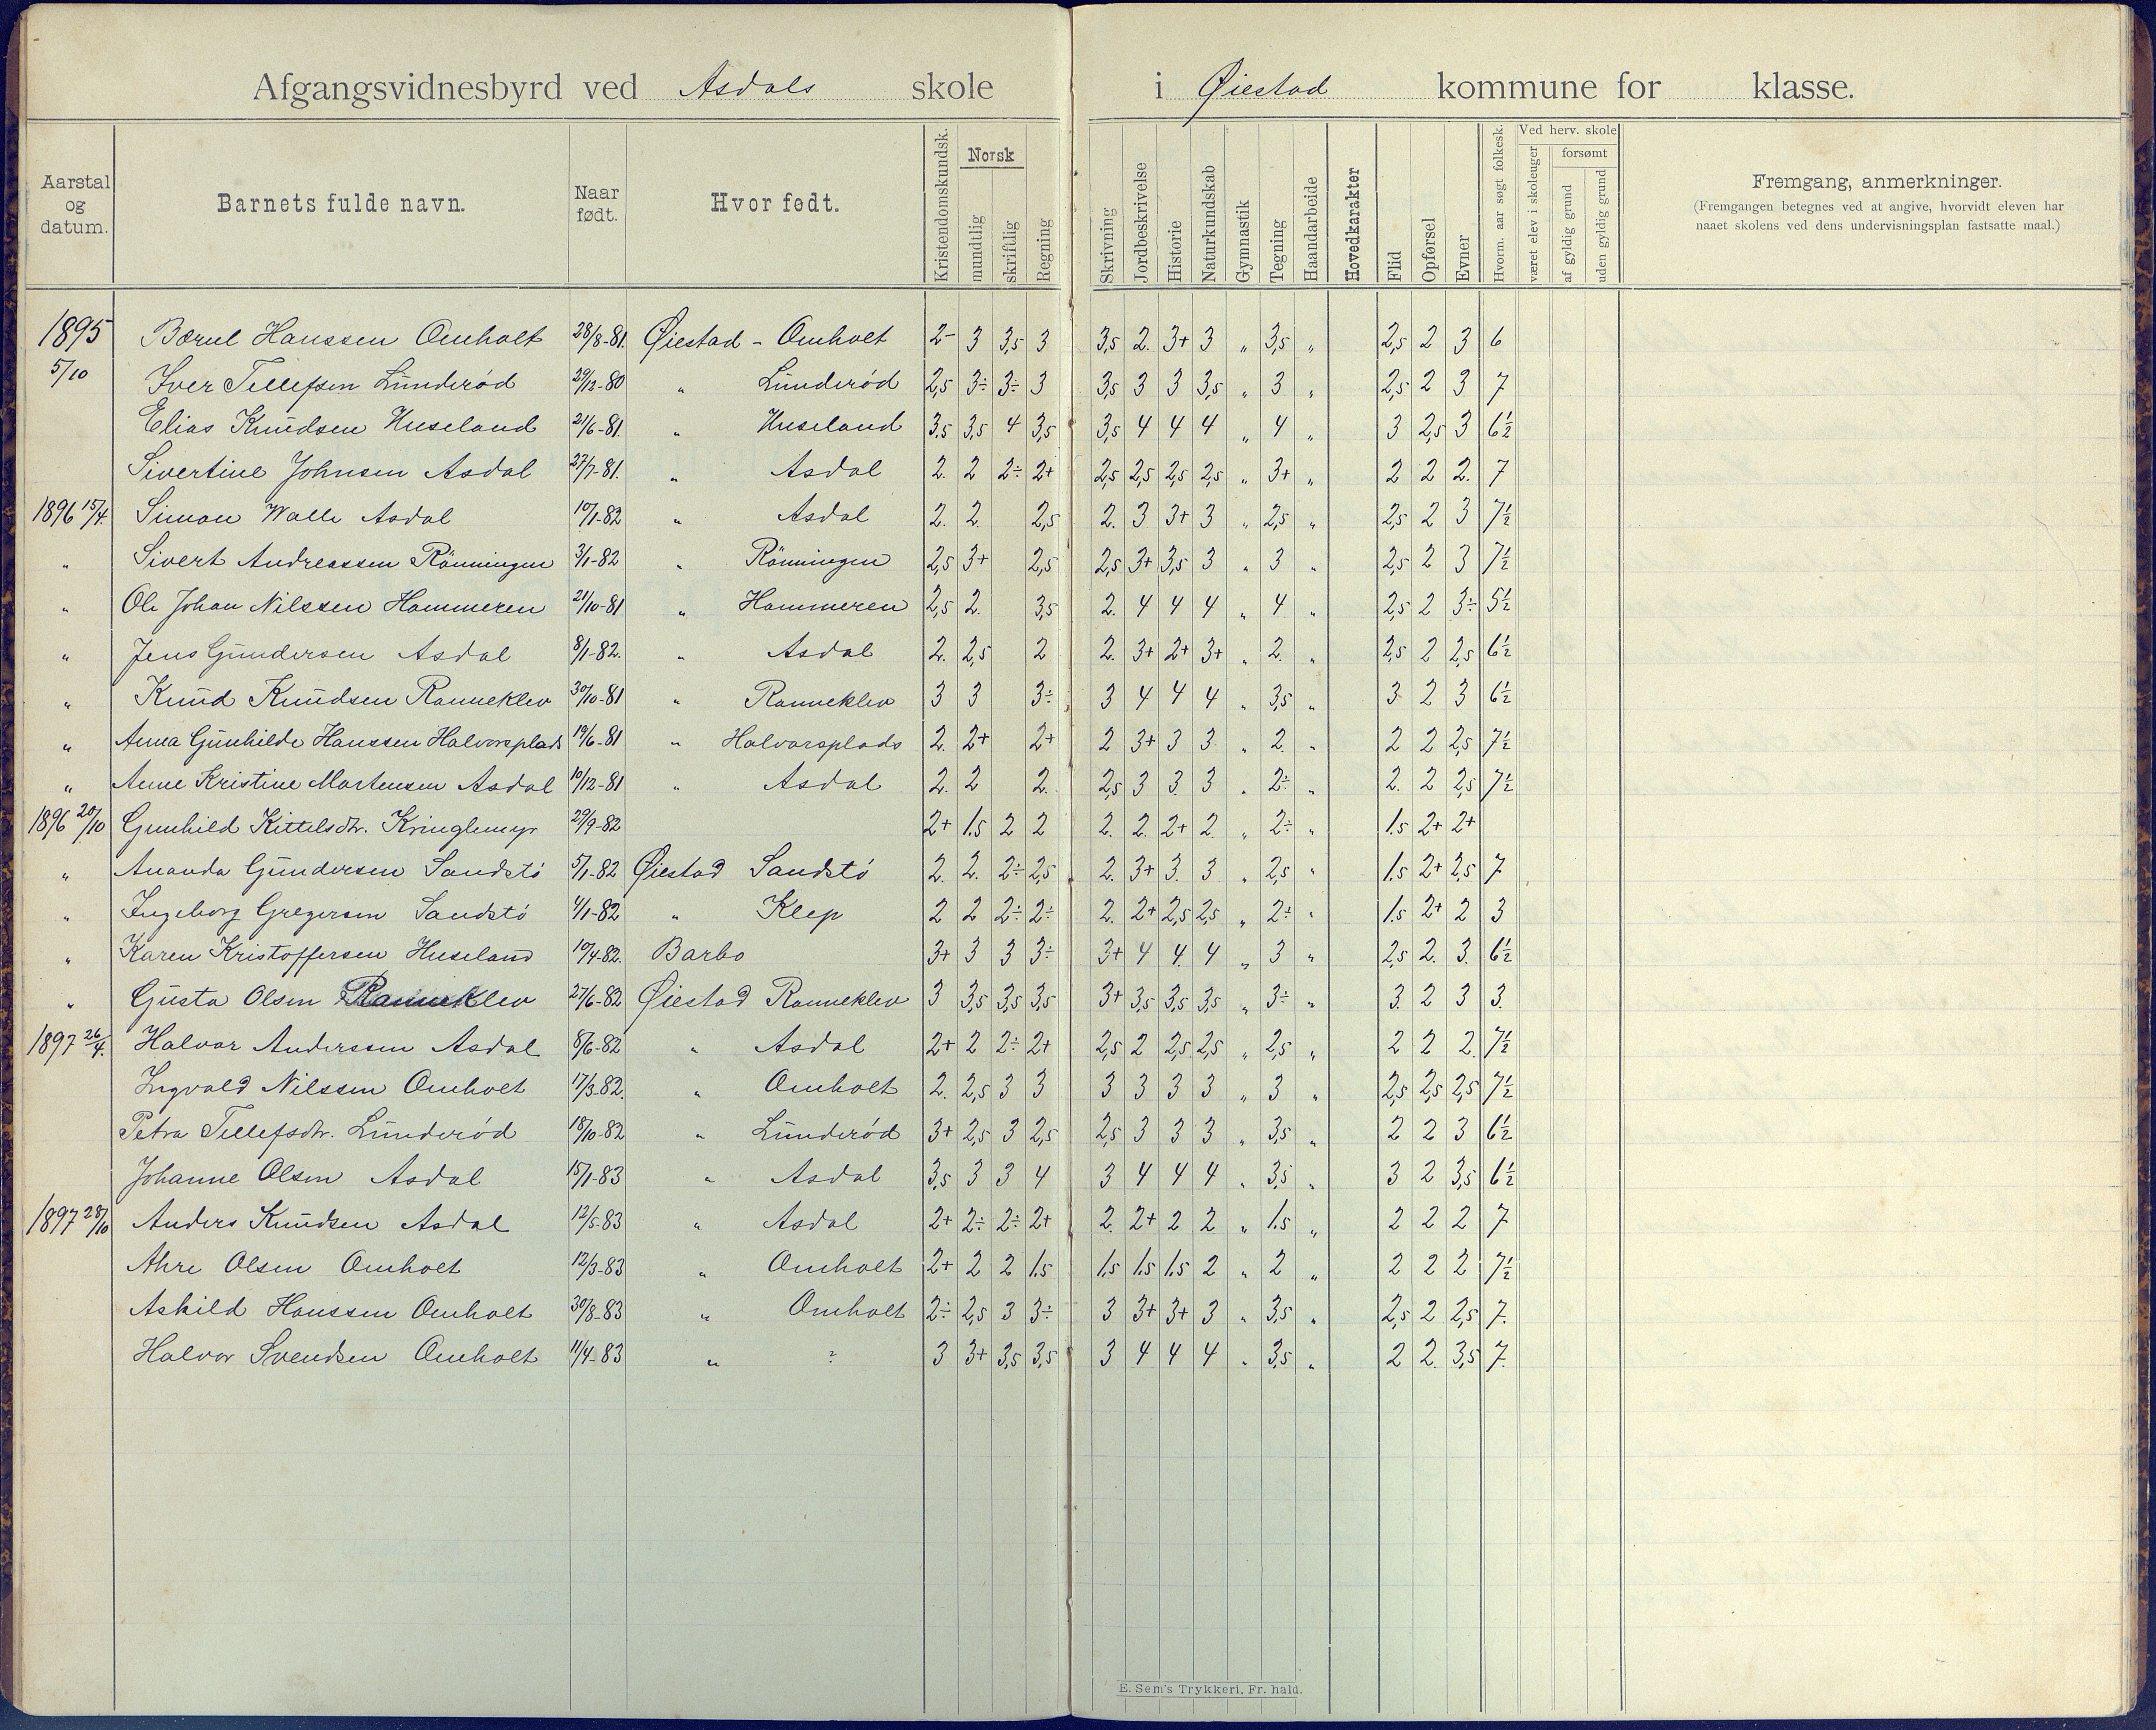 Afgangsvidnesbyrd ved Asdals skole i Øiestad kommune for klasse.
Aarstal og datum. Barnets fulde navn. Naar født. Hvor født. Kristendomskundsk. Norsk mundtlig skriftlig Regning Skrivning Jordbeskrivelse Historie Naturkundskab Gymnastik Tegning Haandarbeide Hovedkarakter Flid Opførsel Evner Hvorm. aar søgt folkesk. Ved herv. skole været elev i skoleuger forsømt af gyldig grund uden gyldig grund Fremgang, anmerkninger.
(Fremgangen betegnes ved at angive, hvorvidt eleven har
naaet skolens ved dens undervisningsplan fastsatte maal.)
1895 Bærul Hanssen Omholt 28/8-81. Øiestad - Omholt 2- 3 3,5 3 3,5 2. 3+ 3 „ 3,5 „ 2,5 2 3 6
5/10 Iver Tellefsen Lunderød 29/12-80 „ Lunderød 2,5 3÷ 3÷ 3 3,5 3 3 3,5 „ 3 „ 2,5 2 3 7
Elias Knudsen Huseland 21/6-81. „ Huseland 3,5 3,5 4 3,5 3,5 4 4 4 „ 4 „ 3 2,5 3 6½
Sivertine Johnsen Asdal 27/7-81. „ Asdal 2. 2 2÷ 2+ 2,5 2,5 2,5 2,5 „ 3+ „ 2 2 2. 7
1896 15/4. Simon Walle Asdal 10/1-82 „ Asdal 2. 2. 2,5 2. 3 3+ 3 „ 2,5 „ 2,5 2 3 7½
„ Sivert Andreassen Rönningen 3/1-82 „ Rönningen 2,5 3+ 2,5 2,5 3+ 3,5 3 „ 3 „ 2,5 2 3 7½
„ Ole Johan Nilssen Hammeren 21/10-81 „ Hammeren 2,5 2. 3,5 2. 4 4 4 „ 4 „ 2,5 2 3÷ 5½
„ Jens Gundersen Asdal 8/1-82. „ Asdal 2. 2,5 2 2. 3+ 2+ 3+ „ 2. „ 2,5 2 2,5 6½
„ Knud Knudsen Ranneklev 30/10-81 „ Ranneklev 3 3 3÷ 3 4 4 4 „ 3,5 „ 3 2 3 6½
„ Anna Gunhilde Hanssen Halvorsplads 19/6-81 „ Halvorsplads 2. 2+ 2+ 2 3+ 3 3 „ 2. „ 2 2 2,5 7½
„ Anne Kristine Martensen Asdal 10/12-81 „ Asdal 2. 2 2. 2,5 3 3. 3 „ 2÷ „ 2. 2 2,5 7½
1896 20/10 Gunhild Kittelsdtr. Kringlemyr 29/9-82 2+ 1.5 2 2 2. 2. 2+ 2. „ 2÷ „ 1.5 2+ 2+
„ Ananda Gundersen Sandstø 5/1-82 Øiestad Sandstø 2. 2. 2÷ 2,5 2. 3+ 3. 3 „ 2,5 „ 1.5 2+ 2,5 7
„ Ingeborg Gregersen Sandstø 4/1-82 „ Klep 2 2 2÷ 2÷ 2. 2+ 2,5 2,5 „ 2÷ „ 1.5 2+ 2 3
„ Karen Kristoffersen Huseland 10/4-82. Barbo 3+ 3 3 3÷ 3+ 4 4. 4 „ 3 „ 2,5 2. 3. 6½
„ Gusta Olsen Ranneklev 27/6-82 Øiestad Ranneklev 3 3,5 3,5 3,5 3+ 3,5 3,5 3,5 „ 3÷ „ 3. 2 3 3.
1897 26/4. Halvor Anderssen Asdal 8/6-82 „ Asdal 2+ 2 2÷ 2+ 2,5 2 2,5 2,5 „ 2,5 „ 2 2 2. 7½
Ingvald Nilssen Omholt 17/3-82. „ Omholt 2. 2,5 3 3 3 3 3 3 „ 3 „ 2,5 2,5 2,5 7½
Petra Tellefsdtr. Lunderød 18/10-82 „ Lunderød 3+ 2,5 3 2,5 2,5 3 3 3 „ 3,5 „ 2 2 3 6½
Johanne Olsen Asdal 15/1-83 „ Asdal 3,5 3 3 4 3 4 4 4 „ 3,5 „ 3 2 3,5 6½
1897 28/10 Anders Knudsen Asdal 12/5-83 „ Asdal 2+ 2÷ 2÷ 2+ 2. 2+ 2 2 „ 1.5 „ 2 2 2 7
Ahre Olsen Omholt 12/3-83 „ Omholt 2+ 2 2 1.5 1.5 1.5 1.5 2 „ 2 „ 2 2 2 7½
Askild Hanssen Omholt 30/8-83 „ Omholt 2÷ 2,5 3 3÷ 3 3+ 3+ 3 „ 3,5 „ 2,5 2 2,5 7.
Halvor Svendsen Omholt 11/4-83 „ ? 3 3+ 3,5 3,5 3 4 4 4 „ 3,5 „ 2 2. 3,5 7.
E. Sem's Trykkeri, Fr. hald.